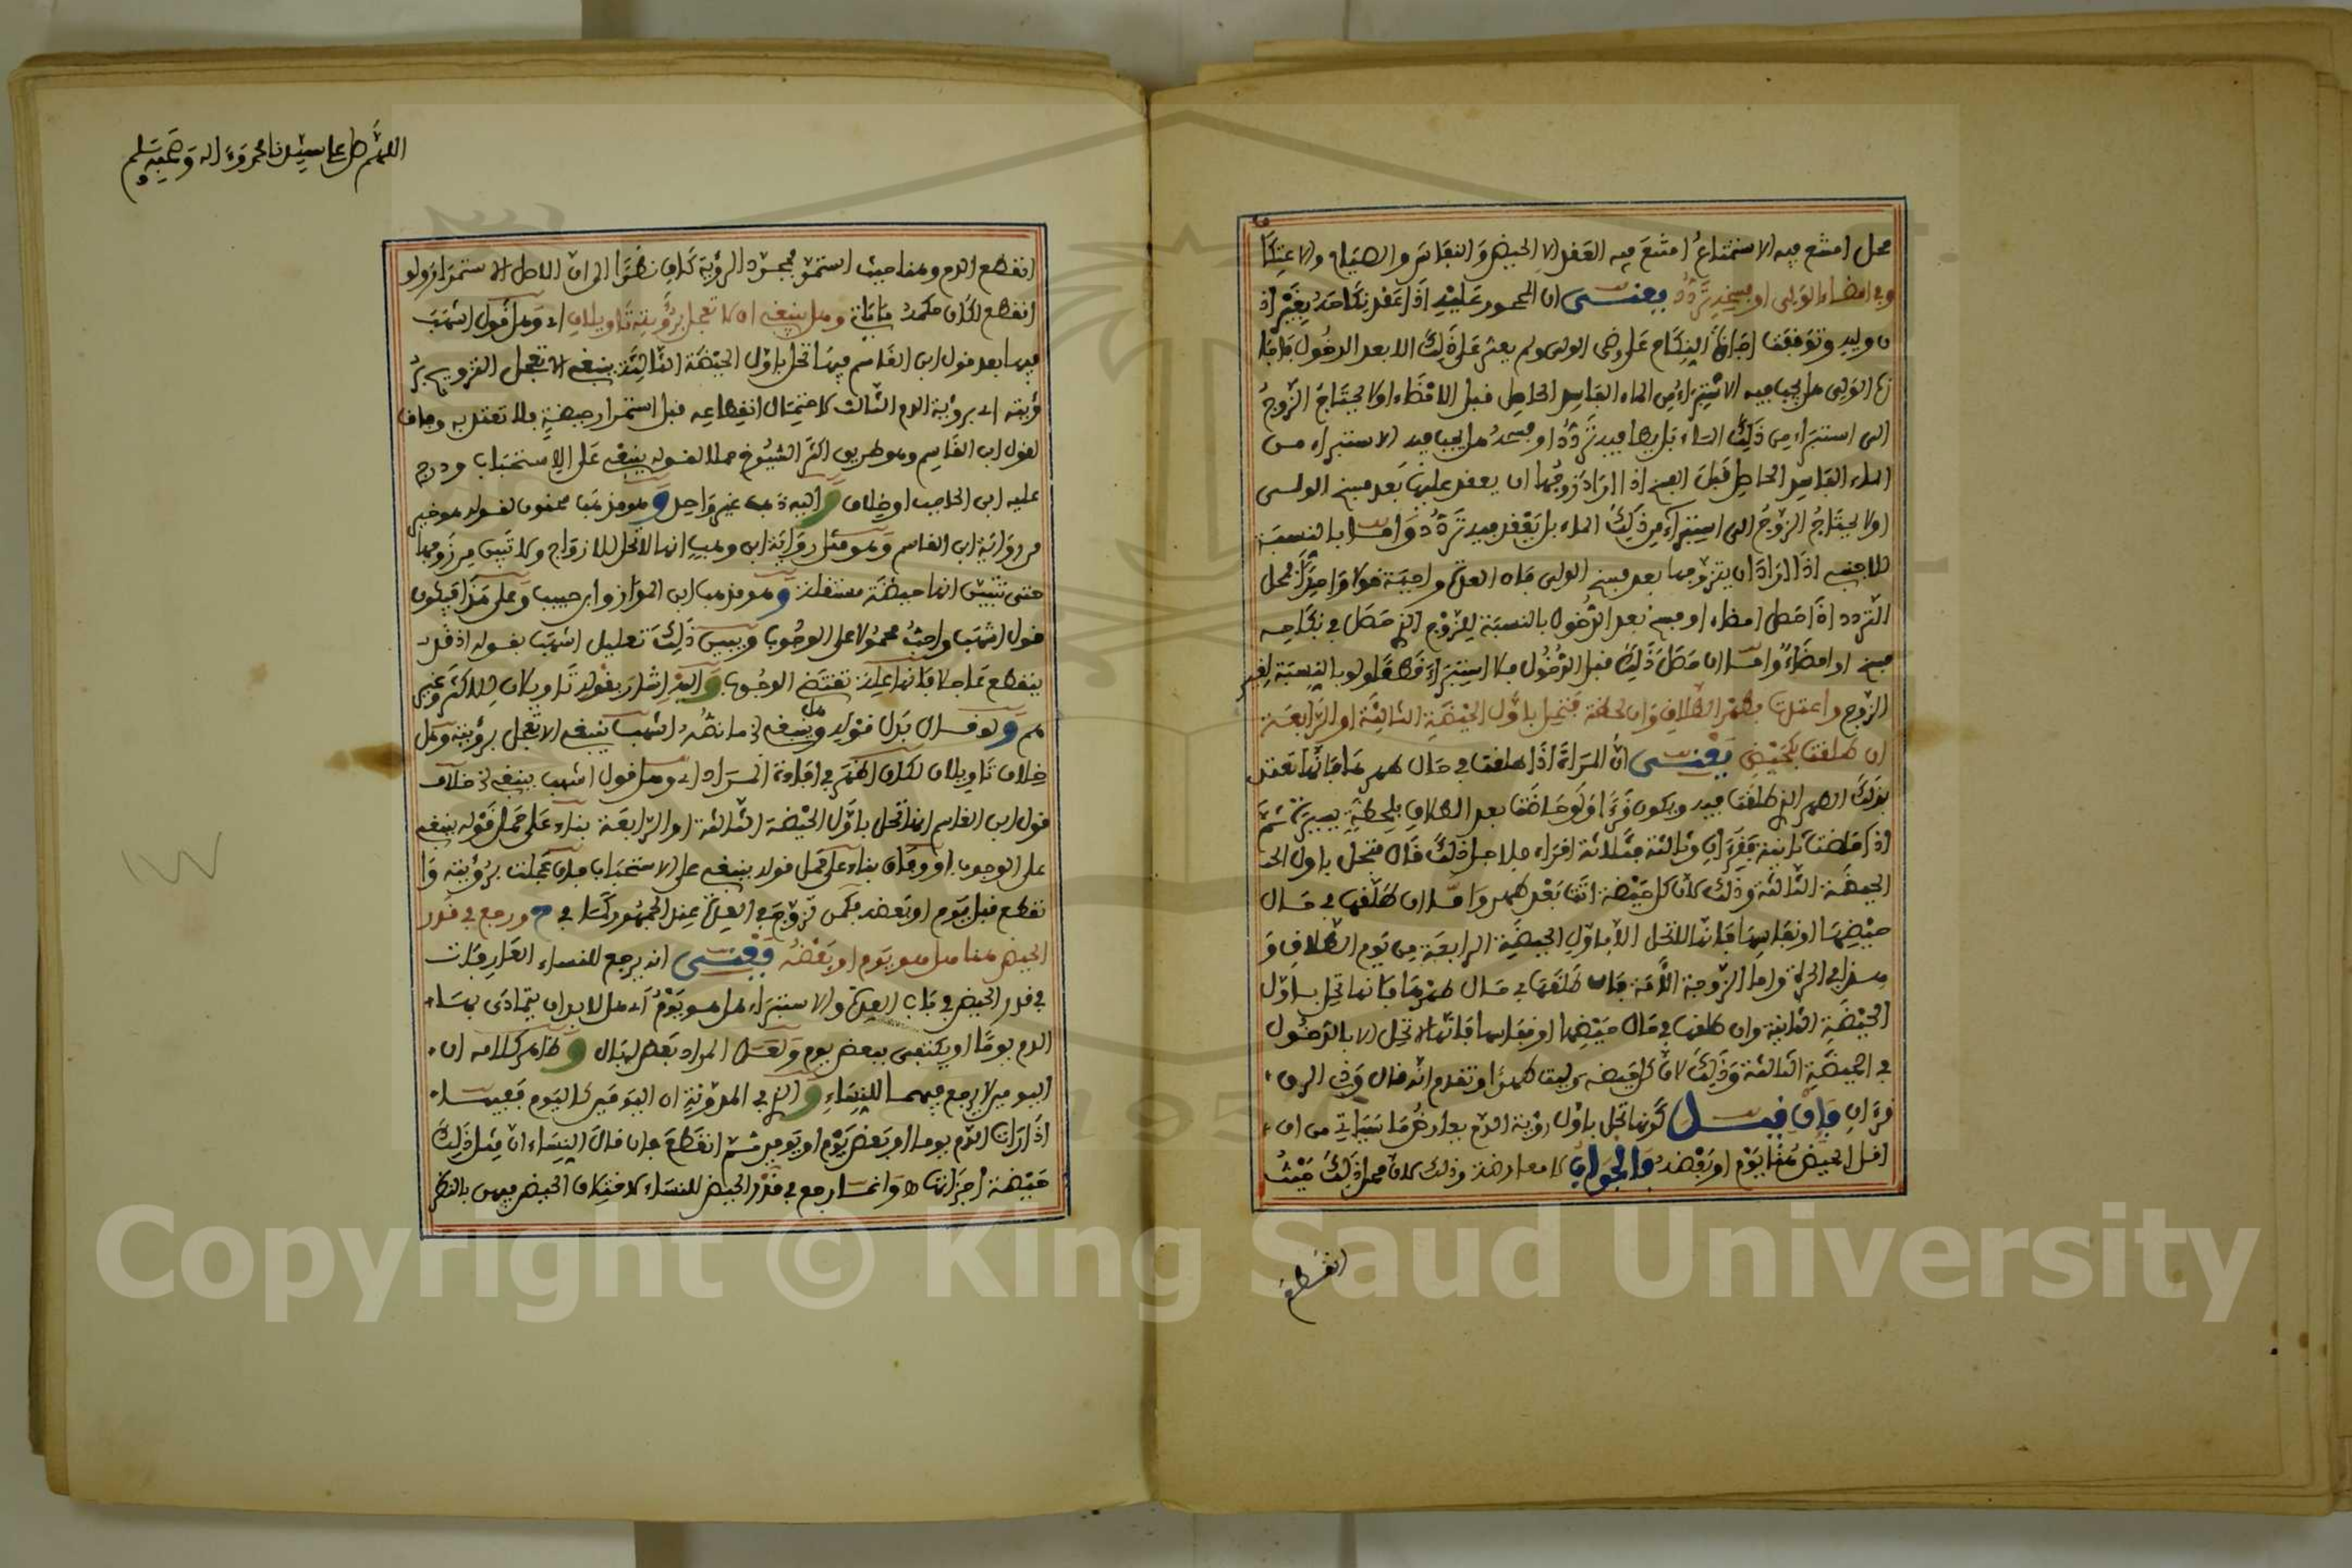 محل امتنع فيه الاستمتاع امتنع فيه العقد الا الحيض والنفاس والصيام والاعتكا
وفي امضاء الولي او فسخه تردد يعني ان المحجور عليه اذا عقد نكاحه بغير اذ
ن وليه وتوقفت اجازة النكاح على رضى الولي ولم يعثر على ذلك الا بعد الدخول فاجا
زه الولي هل يجب فيه الاستبراء من الماء الفاسد الحاصل قبل الامضاء او لا يحتاج الزوج
الى استبراء من ذلك الماء بل يطا فيه تردد او فسخه هل يجب فيه الاستبراء من
الماء الفاسد الحاصل قبل الفسخ اذا اراد زوجها ان يعقد عليها بعد فسخ الولي
او لا يحتاج الزوج الى استبراء من ذلك الماء بل يعقد فيه تردد واما بالنسبة
للاجنبي اذا اراد ان يتزوجها بعد فسخ الولي فان العدة واجبة قولا واحدا فمحل
التردد اذا حصل امضاء او فسخ بعد الدخول بالنسبة للزوج الذي حصل في نكاحه
فسخ او امضاء واما ان حصل ذلك قبل الدخول فلا استبراء قطعا ولو بالنسبة لغير
الزوج واعتدت بطهر الطلاق وان لحظة فتحل باول الحيضة الثالثة او الرابعة
ان طلقت بكحيض يعني ان المراة اذا طلقت في حال طهرها فانها تعتد
بذلك الطهر الذي طلقت فيه ويكون قرءا ولو حاضت بعد الطلاق بلحظة يسيرة ثم
اذا حاضت ثانية فقرءان وثالثة فثلاثة اقراء فلاجل ذلك قال فتحل باول الحـ
الحيضة الثالثة وذلك لان كل حيضة اتت بعد طهر واما ان طلقها في حال
حيضها او نفاسها فانها لا تحل الا باول الحيضة الرابعة من يوم الطلاق و
هذا في الحرة واما الزوجة الامة فان طلقها في حال طهرها فانها تحل باول
الحيضة الثانية وان طلقها في حال حيضها او نفاسها فانها لا تحل الا بالدخول
في الحيضة الثالثة وذلك لان كل حيضة وليت طهرا وتقدم انه قال وذي الرق
قرءان فان قيل كونها تحل باول رؤية الدم يعارض ما سياتي من ان
اقل الحيض هنا يوم او بعضه فالجواب لا معارضة وذلك لان محل ذلك حيث
انقطع
اللهم صل على سيدنا محمد وءاله وصحبه وسلم
انقطع الدم وهنا حيث استمر فمجرد الرؤية كاف نظرا الى ان الاصل الاستمرار ولو
انقطع لكان حكمه ما ياتي وهل ينبغي ان لا تعجل برؤيته تاويلان اي وهل قول اشهب
فيها بعد قول ابن القاسم فيها تحل باول الحيضة الثالثة ينبغي الا تعجل التزويج بر
ؤيته اي برؤية الدم الثالث لاحتمال انقطاعه قبل استمرار حيضة فلا تعتد به وفاق
لقول ابن القاسم وهو طريق اكثر الشيوخ حملا لقوله ينبغي على الاستحباب ودرج
عليه ابن الحاجب او خلاف واليه ذهب غير واحد وهو مذهب سحنون لقوله هو خير
من رواية ابن القاسم وهو مثل رواية ابن وهب انها لا تحل للازواج ولا تبين من زوجها
حتى يتبين انها حيضة مستقلة وهو مذهب ابن المواز وابن حبيب وعلى هذا فيكون
قول اشهب واجب محمولا على الوجوب ويبين ذلك تعليل اشهب بقوله اذ قد
ينقطع عاجلا فانها علة تقتضي الوجوب واليه اشار بقوله تاويلان للاكثر وغير
هم ولو قال بدل قوله وهل ينبغي الخ ما نصه اشهب ينبغي الا تعجل برؤيته وهل
خلاف تاويلان لكان اظهر في افادة المراد اي وهل قول اشهب ينبغي الخ خلاف
قول ابن القاسم انها تحل باول الحيضة الثالثة او الرابعة بناء على حمل قوله ينبغي
على الوجوب او وفاق بناء على حمل قوله ينبغي على الاستحباب فان عجلت برؤيته وا
نقطع قبل يوم او بعضه فكمن تزوج في العدة عند الجمهور كما في ح ورجع في قدر
الحيض هنا هل هو يوم او بعضه يعني انه يرجع للنساء العارفات
في قدر الحيض في باب العدة والاستبراء هل هو يوم اي هل لا بد ان يتمادى بهـ
الدم يوما او يكتفى ببعض يوم ولعل المراد بعض له بال وظاهر كلامه ان
اليومين لا يرجع فيهما للنساء والذي في المدونة ان اليومين كاليوم ففيها
اذا رات الدم يوما او بعض يوم او يومين ثم انقطع فان قال النساء ان مثل ذلك
حيضة اجزاتها وانما رجع في قدر الحيض للنساء لاختلاف الحيض فيهن بالنظر